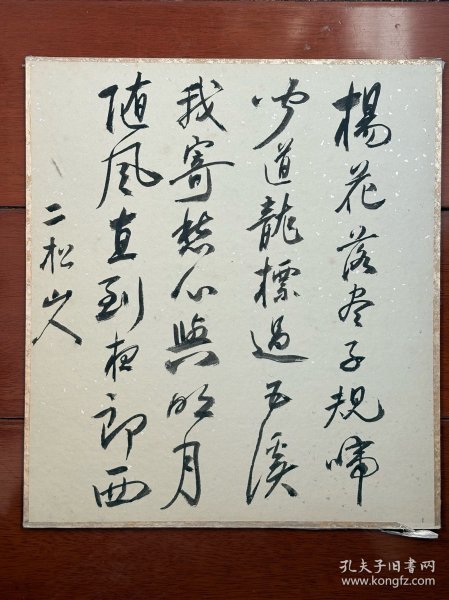 楊花落尽子規啼
聞道龍標過五溪
我寄愁心與明月
随風直到夜郎西
二松山人
孔夫子旧书网
www.kongfz.com